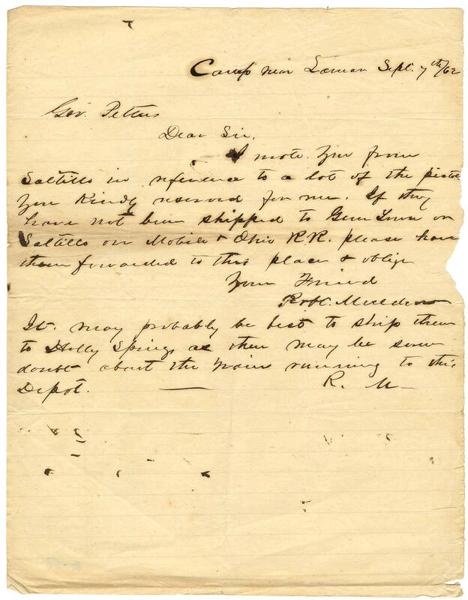 Camp near Lamar Sept. 7th/62
Gov. Pettus
Dear Sir,
I wrote you from
Saltillo in reference to a lot of the pistols
you kindly reserved for me. If they
have not been shipped to Guntown or
Saltillo on Mobile & Ohio RR. please have
them forwarded to this place & oblige
Your Friend
Robt. Muldrow
It may probably be best to ship them
to Holly Springs as there may be some
doubt about the train running to this
Depot. R. M